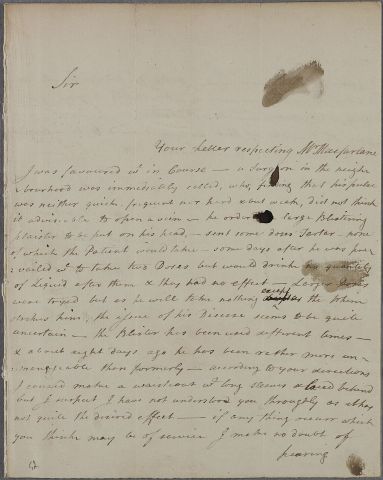 Sir
Your Letter respecting Mr Macfarlane
I was favoured wt in Course — a Surgeon in the neigh
bourhood was immediately called, who, finding that his pulse
was neither quick, frequent nor hard &
did not think
it adviseable to open a vein — he ordered a large Blistering
plaister to be put on his head, — sent some doses Tartar — none
of which the Patient would take — some days after he was pre
vailed wt to take two Doses but would drink no quantity
of Liquid after them & they had no effect — Larger Doses
were tryed but as he will take nothing except the whim
strikes him, the issue of his Disease seems to be quite
uncertain — the Blister has been used different times —
& about eight days ago he has been rather more un
manageable than formerly — according to your directions
I caused make a waistcoat wt long sleeves & laced behind
but I suspect I have not understood you throughly as it has
not quite the desired effect — if any thing occurr which
you think may be of service I make no doubt of
hearing